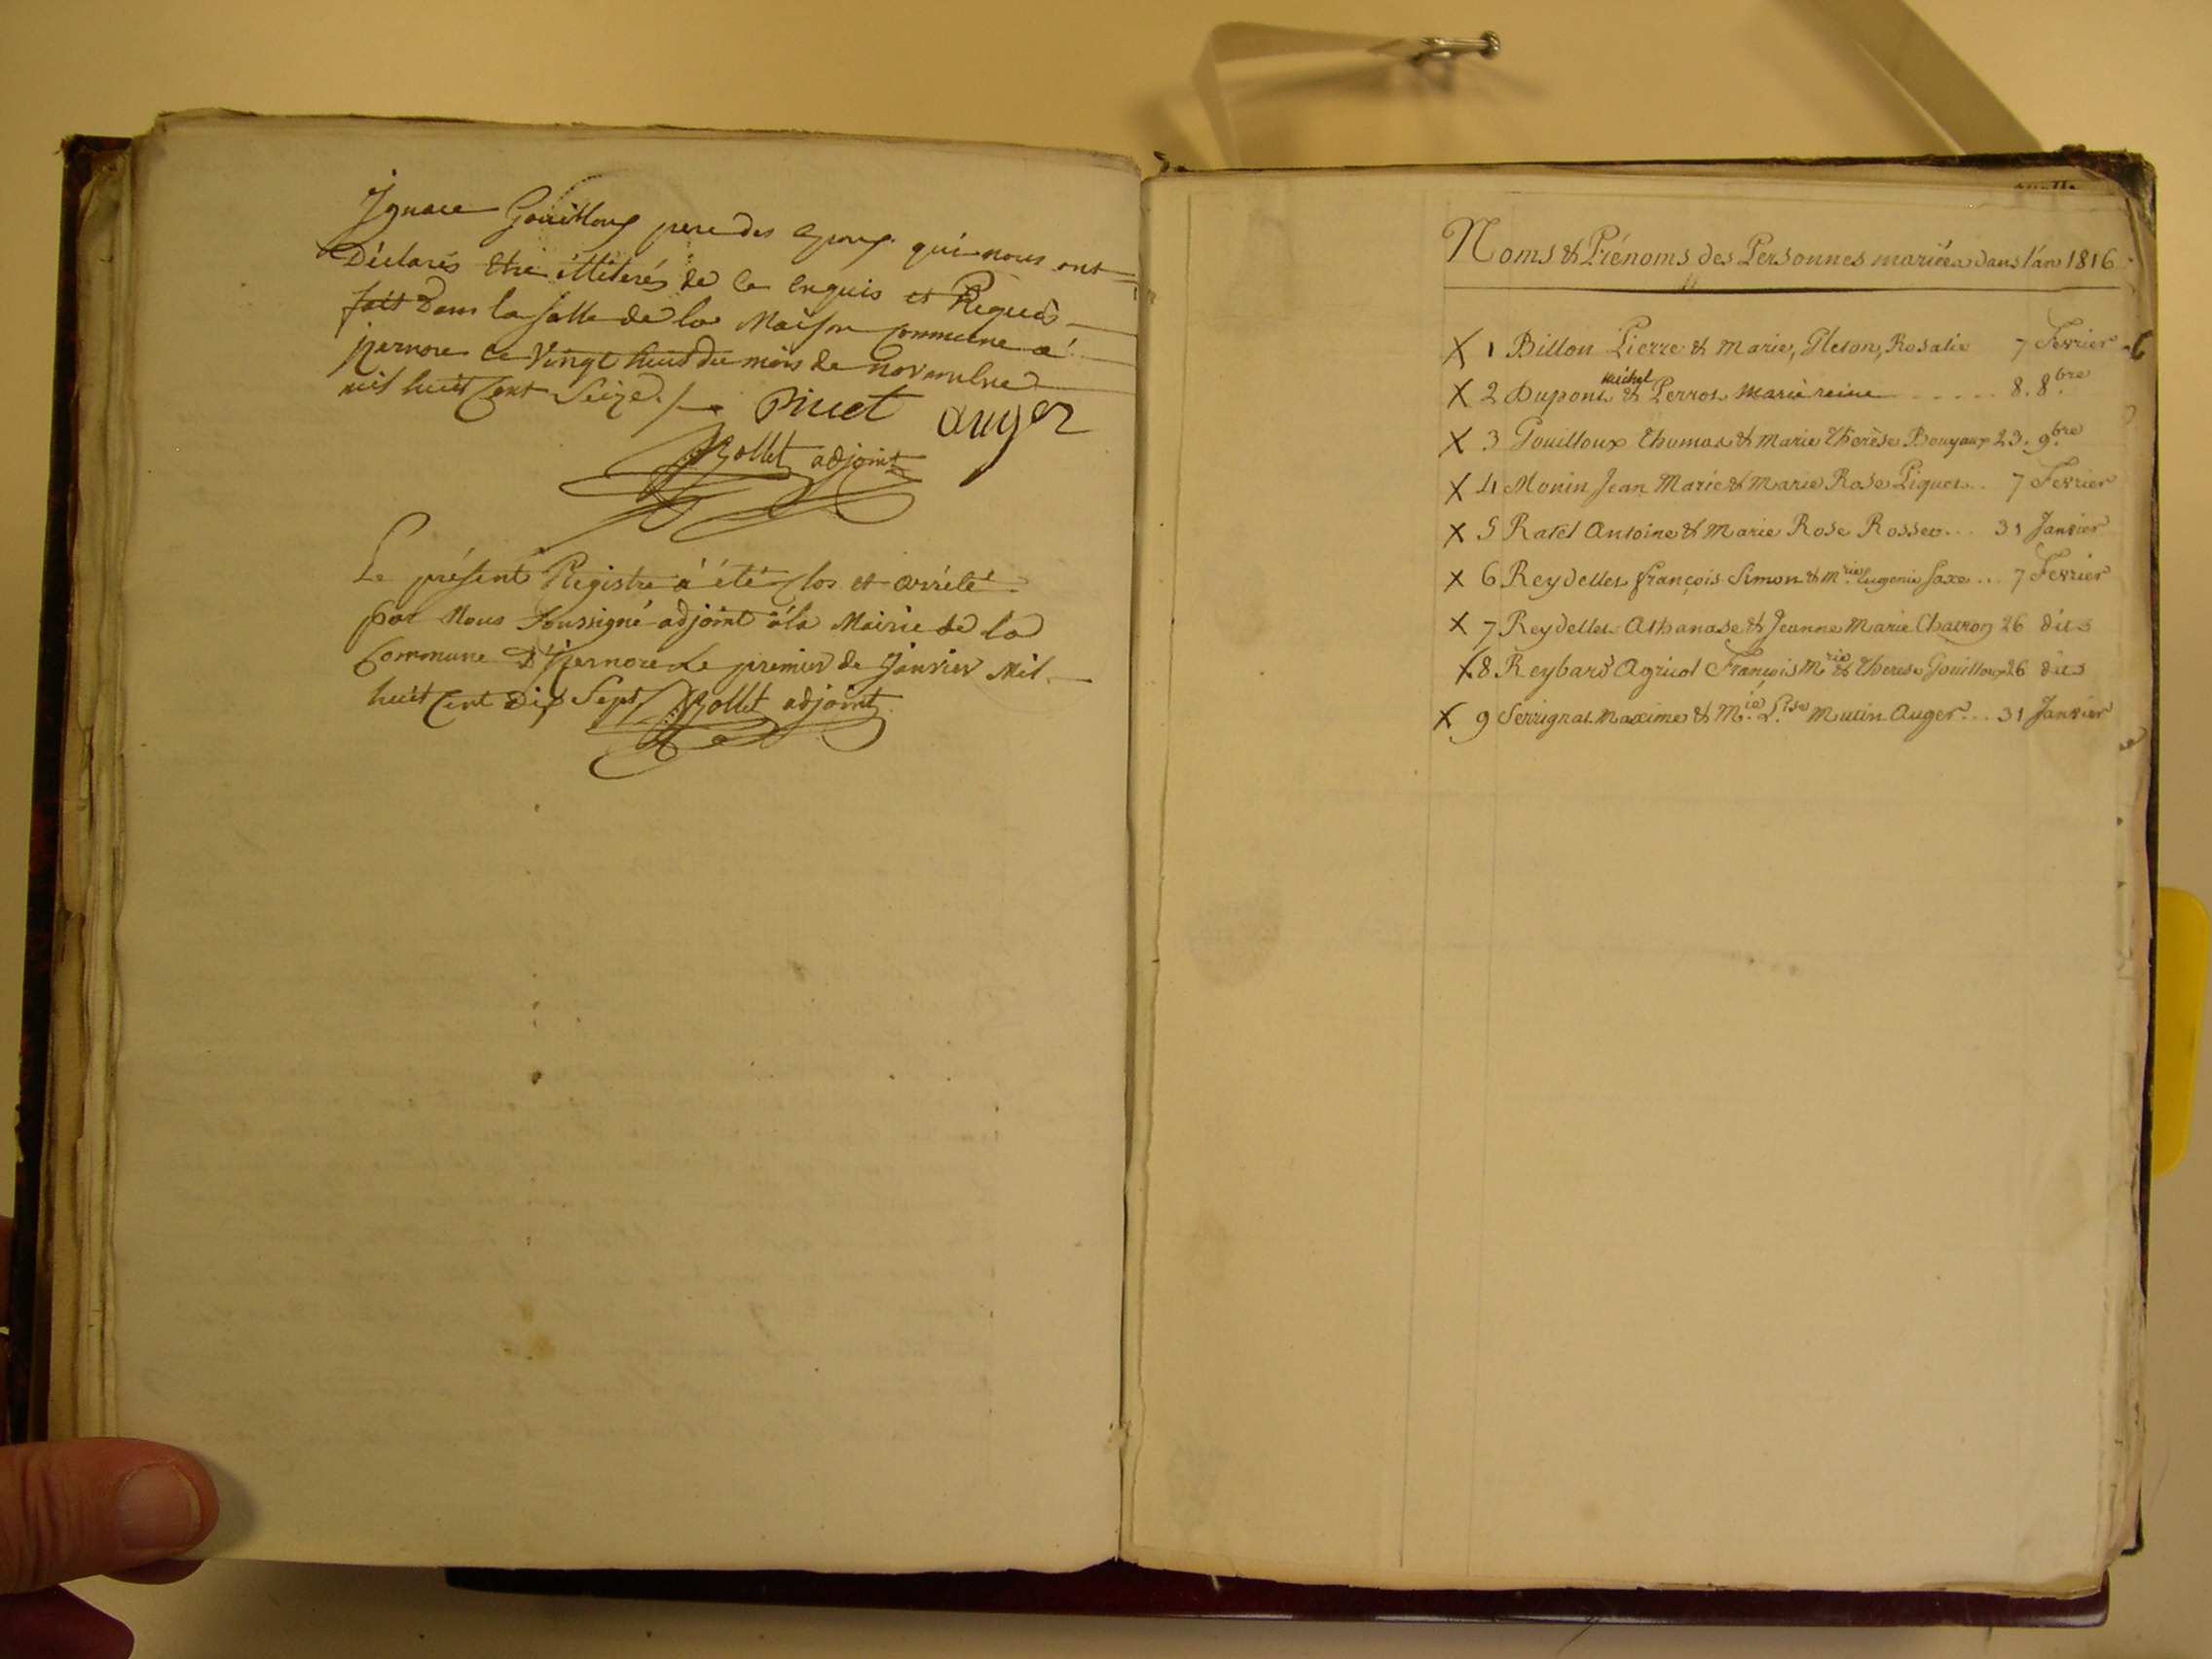 Ignace Gouilloux pere des Epoux qui nous ont
Déclarés être illiterés de ce enquis et Requis
fait Dans la salle de la Maison Commune a
jzernore ce Vingt huit du mois de novembre
mil huit Cent Seize./. Piuet auger
Rollet adjoint
Le présent Registre à été Clos et arrêté
par Nous Soussigné adjoint à la Mairie de la
Commune D'jzernore Le premier de Janvier Mil
huit Cent Dix Sept Rollet adjoint
Noms & Prénoms des Personnes mariées dans l'an 1816
X 1 Billon Pierre & Marie, Gleton, Rosalie 7 Fevrier
X 2 Dupont michel & Perrot Marie reine ...... 8. 8.bre
X 3 Gouilloux Thomas & Marie Therèse Bouyaux 23. 9.bre
X 4 Monin Jean Marie & Marie Rose Piquet .. 7 Fevrier
X 5 Ratel Antoine & Marie Rose Rosset ... 31 Janvier
X 6 Reydellet françois Simon & M.rie Eugenie Saxe ... 7 Fevrier
X 7 Reydellet Athanase & Jeanne Marie Chatron 26 dits
X 8 Reybard Agricol François M.rie & Therese Gouilloux 26 dits
X 9 Serrignat Maxime & M.ie L.ise Mutin Auger ... 31 Janvier